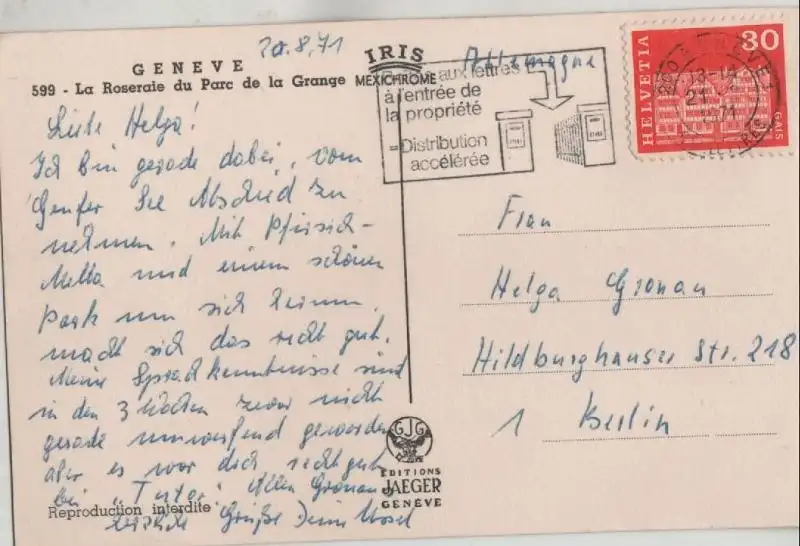 GENEVE
599 - La Roseraie du Parc de la Grange
IRIS
MEXICHROME
20.8.71
Liebe Helga!
Ich bin gerade dabei, vom
Genfer See Abschied zu
nehmen. Mit Pfirsich-
Melba und einem schönen
Park um sich herum,
macht sich das recht gut.
Meine Sprachkenntnisse sind
in den 3 Wochen zwar nicht
gerade umwerfend geworden
aber es war doch recht gut
bei Allen Gronaus
herzliche Grüße Deine
Reproduction interdite
Allemagne
aux lettres
à l'entrée de
la propriété
= Distribution
accélérée
HELVETIA
30
GAIS
GJG
EDITIONS
JAEGER
GENÈVE
Frau
Helga Gronau
Hildburghauser Str. 218
1 Berlin